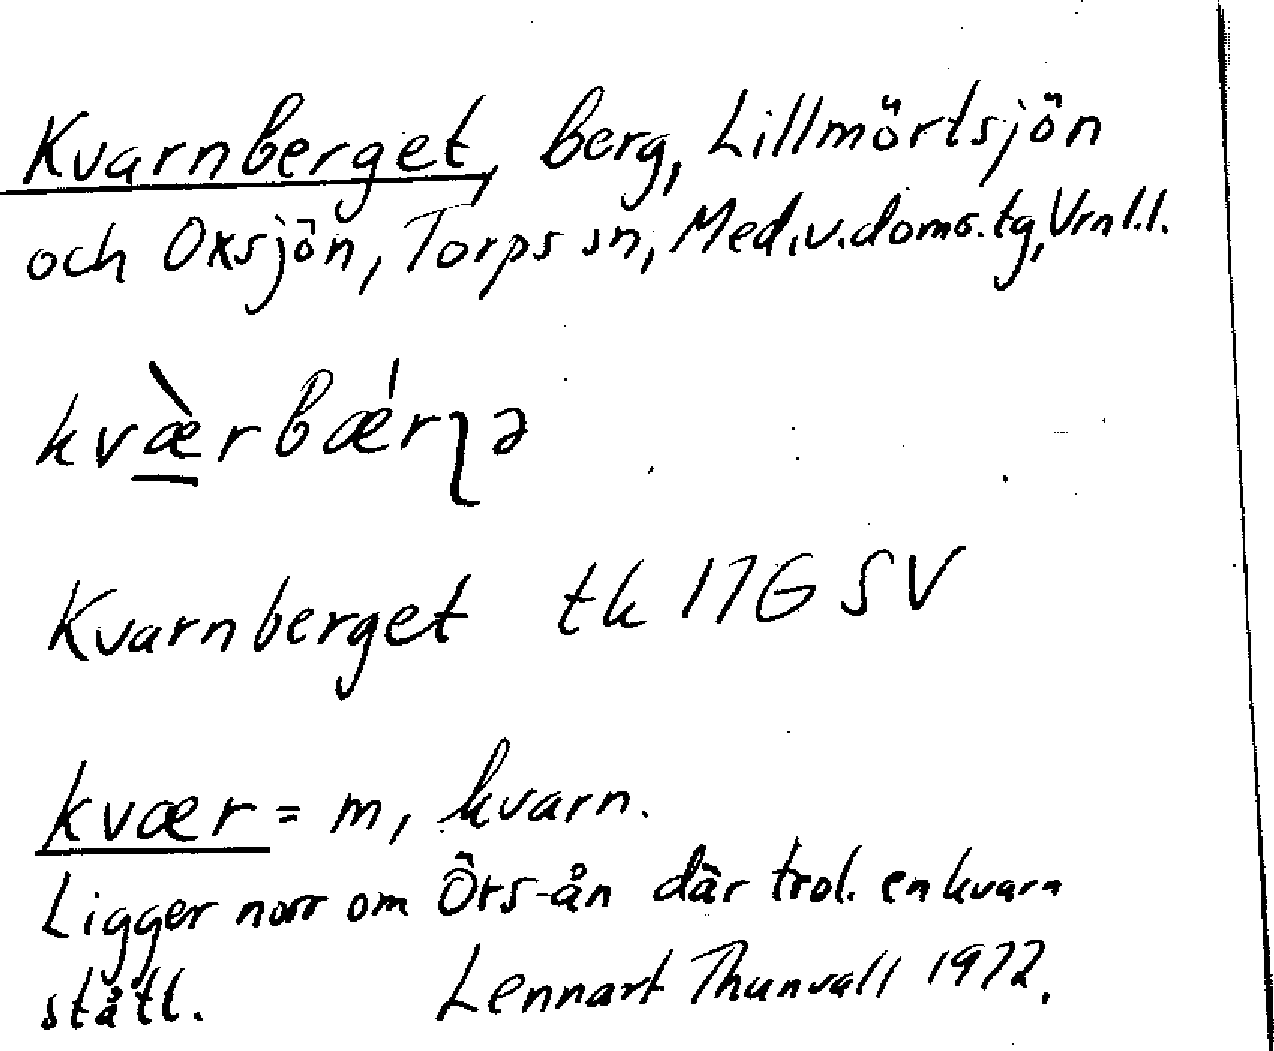 Kvarnberget, berg, Lillmörtsjön
och Oxsjön, Torps sn, Med.v.doms.tg, Vrnl.l.
kvæ̀rbǽrʅə
Kvarnberget tk 17G SV
kvær = m, kvarn.
Ligger norr om Örs-ån där trol. en kvarn
stått. Lennart Thunvall 1972.